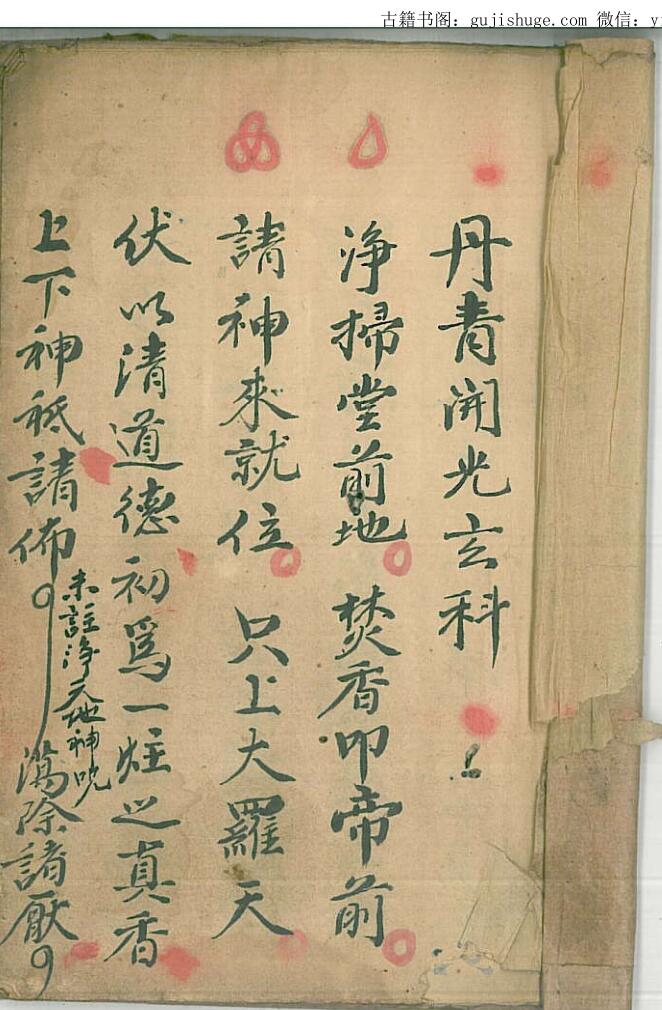 古籍书阁：gujishuge.com 微信：yi
丹青開光玄科
淨掃堂前地 焚香叩帝前
請神來就位 只上大羅天
伏以清道德初爲一炷之真香
上下神祇請佈
未註淨天地神咒
蕩除諸厭